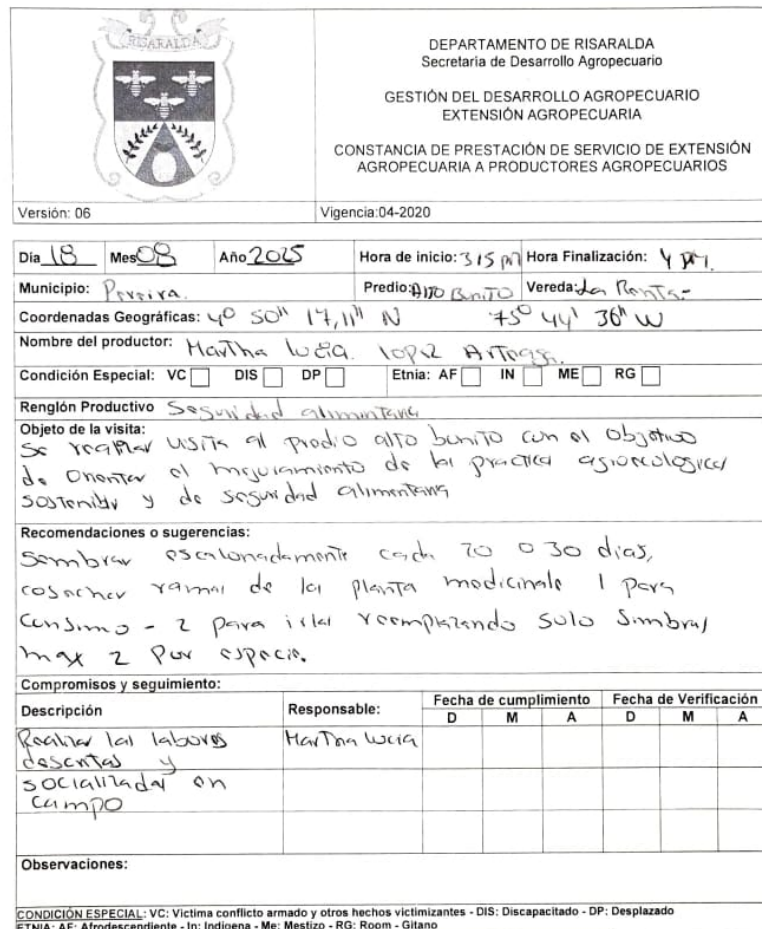 RISARALDA
DEPARTAMENTO DE RISARALDA
Secretaria de Desarrollo Agropecuario
GESTIÓN DEL DESARROLLO AGROPECUARIO
EXTENSIÓN AGROPECUARIA
CONSTANCIA DE PRESTACIÓN DE SERVICIO DE EXTENSIÓN
AGROPECUARIA A PRODUCTORES AGROPECUARIOS
Versión: 06 Vigencia:04-2020
Dia 18 Mes 08 Año 2025 Hora de inicio: 315 pm Hora Finalización: 4 pm.
Municipio: Pereira. Predio: Alto Bonito Vereda: La
Coordenadas Geográficas: 4° 50" 17,11" N 75° 44' 36" W
Nombre del productor: Martha lucia. lopez Arteaga.
Condición Especial: VC DIS DP Etnia: AF IN ME RG
Renglón Productivo Seguridad alimentaria
Objeto de la visita:
Se realizar visita al predio alto bonito con el objetivo
de orientar el mejoramiento de la practica agroecologica
sostenible y de seguridad alimentaria
Recomendaciones o sugerencias:
Sembrar escalonadamente cada 20 o 30 dias,
cosechar ramas de la planta medicinale 1 para
consumo - 2 para reemplazando solo
max 2 por especie.
Compromisos y seguimiento:
Descripción Responsable: Fecha de cumplimiento Fecha de Verificación
D M A D M A
Realizar las labores Martha lucia
descritas y
socializadas en
campo
Observaciones:
CONDICIÓN ESPECIAL: VC: Victima conflicto armado y otros hechos victimizantes - DIS: Discapacitado - DP: Desplazado
ETNIA: AF: Afrodescendiente - In: Indigena - Me: Mestizo - RG: Room - Gitano